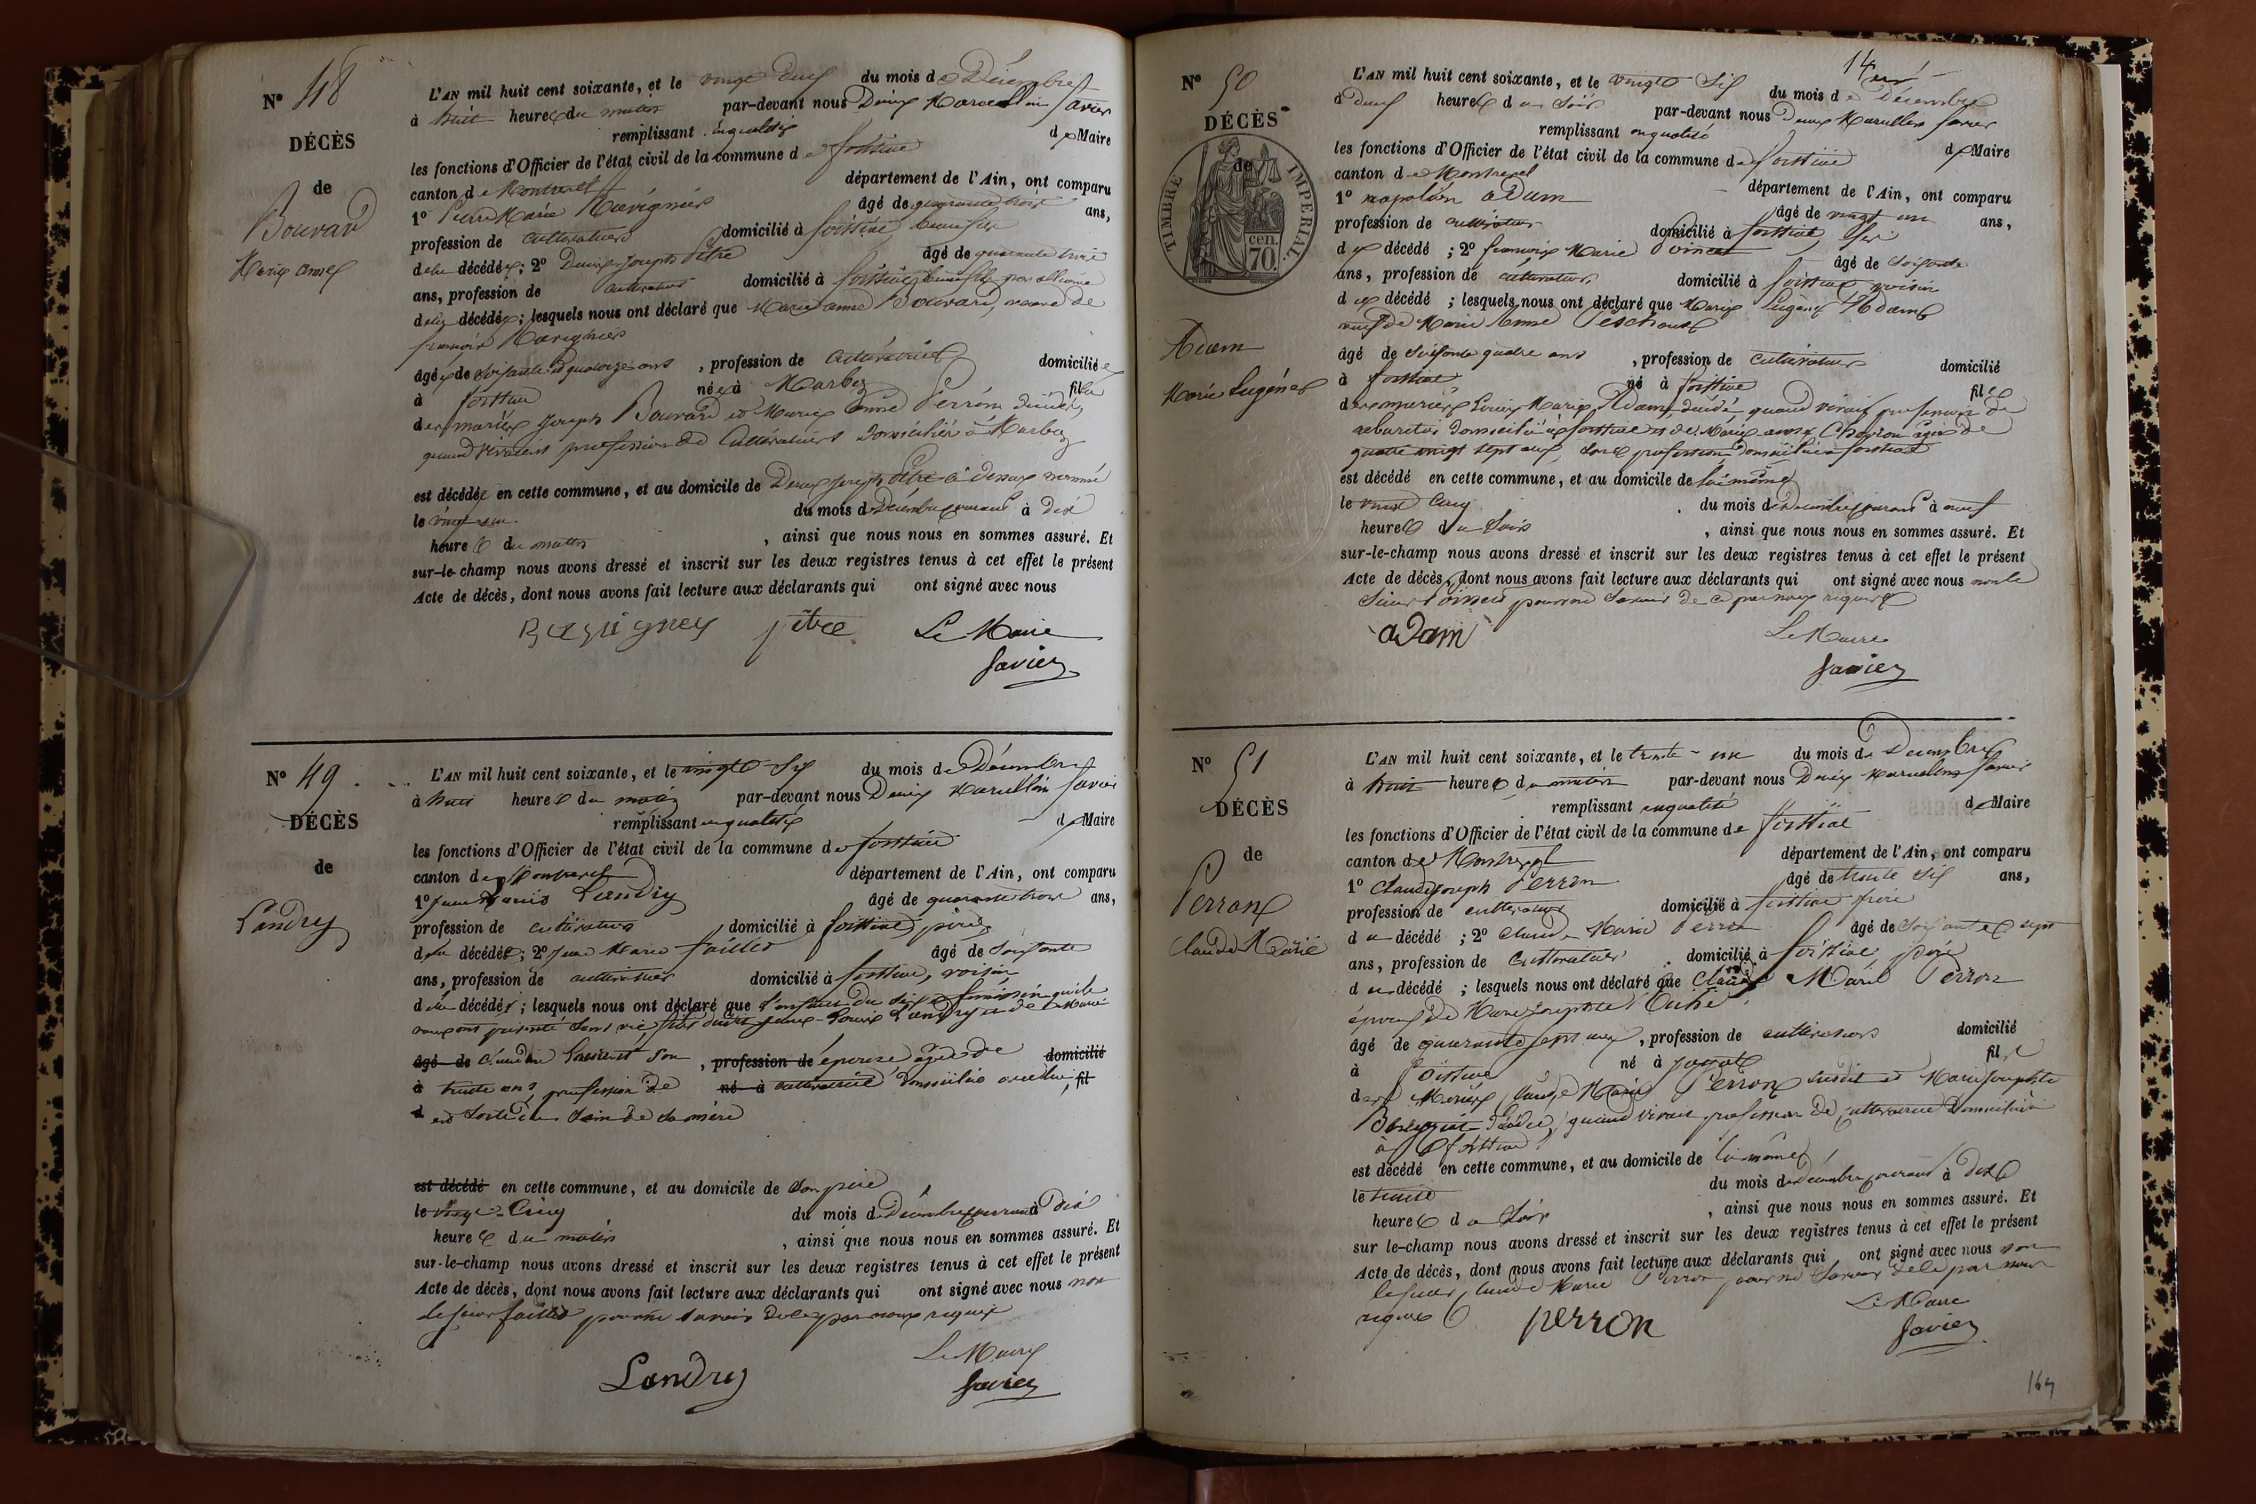 N° 48
DÉCÈS
de
Bouvard
Marie anne
L'AN mil huit cent soixante, et le vingt deux du mois de Décembre
à huit heures du matin par-devant nous Denis Marcellin favier
remplissant en qualité de Maire
les fonctions d'Officier de l'état civil de la commune de foissiat
canton de Montrevel département de l'Ain, ont comparu
1° Pierre Marie âgé de quarante trois ans,
profession de cultivateur domicilié à foissiat, beau fils
de la décédée; 2° Denis Joseph Pitre âgé de quarante trois
ans, profession de cultivateur domicilié à foissiat, beau fils par alliance
de la décédée; lesquels nous ont déclaré que Marie anne Bouvard, veuve de
françois
âgée de soixante et quatorze ans, profession de cultivatrice domiciliée
à foissiat née à Marboz fille
des mariés Joseph Bouvard et Marie Anne Perrin décédés
quand vivaient profession de cultivateurs domiciliés à Marboz
est décédée en cette commune, et au domicile de Denis Joseph Pitre ci dessus nommé
le vingt un du mois de Décembre courant à dix
heures du matin, ainsi que nous nous en sommes assuré. Et
sur-le-champ nous avons dressé et inscrit sur les deux registres tenus à cet effet le présent
Acte de décès, dont nous avons fait lecture aux déclarants qui ont signé avec nous
pitre Le Maire
favier
N° 49
DÉCÈS
de
Landry
L'AN mil huit cent soixante, et le vingt Six du mois de Décembre
à huit heures du matin par-devant nous Denis Marcellin favier
remplissant en qualité de Maire
les fonctions d'Officier de l'état civil de la commune de foissiat
canton de Montrevel département de l'Ain, ont comparu
1° Jean Louis Landry âgé de quarante trois ans,
profession de cultivateur domicilié à foissiat, père
de la décédée; 2° Jean Marie faillet âgé de Soixante
ans, profession de cultivateur domicilié à foissiat, voisin
de la décédée; lesquels nous ont déclaré que l'enfant du sexe féminin qu'ils
nous ont présenté sans vie Jean Louis Landry et de Marie
âgé de Son, profession de épouse âgée de domicilié
à trente ans, profession de né à cultivatrice domiciliée avec lui, fil
d est sorti du Sein de sa mère
est décédé en cette commune, et au domicile de Son père
le vingt-Cinq du mois de Décembre courant à Dix
heures du matin, ainsi que nous nous en sommes assuré. Et
sur-le-champ nous avons dressé et inscrit sur les deux registres tenus à cet effet le présent
Acte de décès, dont nous avons fait lecture aux déclarants qui ont signé avec nous non
le sieur faillet pour ne savoir de ce par nous requis
Le Maire
Landry favier
14
N° 50
DÉCÈS
de
TIMBRE IMPERIAL.
70 cen.
Adam
Marie Eugène
L'AN mil huit cent soixante, et le vingt Six du mois de Décembre
à Deux heures du Soir par-devant nous Denis Marcellin favier
remplissant en qualité de Maire
les fonctions d'Officier de l'état civil de la commune de foissiat
canton de Montrevel département de l'Ain, ont comparu
1° napoléon Adam âgé de vingt un ans,
profession de cultivateur domicilié à foissiat, fils
d décédé; 2° françois Marie Poincet âgé de Soixante
ans, profession de cultivateur domicilié à foissiat voisin
d décédé; lesquels nous ont déclaré que Marie Eugène Adam
veuf de Marie Anne
âgé de Soixante quatre ans, profession de cultivateur domicilié
à foissiat né à foissiat fils
des mariés Louis Marie Adam, décédé quand vivait profession de
cabaretier domicilié à foissiat et de Marie anne âgée de
quatre vingt sept ans, Sans profession domiciliée à foissiat
est décédé en cette commune, et au domicile de lui même
le vingt Cinq du mois de Décembre courant à neuf
heures du Soir, ainsi que nous nous en sommes assuré. Et
sur-le-champ nous avons dressé et inscrit sur les deux registres tenus à cet effet le présent
Acte de décès, dont nous avons fait lecture aux déclarants qui ont signé avec nous non le
Sieur Poincet pour ne Savoir de ce par nous requis
adam Le Maire
favier
N° 51
DÉCÈS
de
Perron
Claude Marie
L'AN mil huit cent soixante, et le trente-un du mois de Décembre
à huit heures du matin par-devant nous Denis Marcellin favier
remplissant en qualité de Maire
les fonctions d'Officier de l'état civil de la commune de foissiat
canton de Montrevel département de l'Ain, ont comparu
1° Claude Joseph Perron âgé de trente Six ans,
profession de cultivateur domicilié à foissiat frère
du décédé; 2° Claude Marie Perron âgé de Soixante sept
ans, profession de Cultivateur domicilié à foissiat, père
du décédé; lesquels nous ont déclaré que Claude Marie Perron
époux de Marie Josephte
âgé de quarante sept ans, profession de cultivateur domicilié
à foissiat né à Jayat fils
des Mariés Claude Marie Perron susdit et Marie Josephte
décédée, quand vivait profession de cultivatrice Domiciliée
à foissiat
est décédé en cette commune, et au domicile de lui même
le trente du mois de Décembre courant à dix
heures du Soir, ainsi que nous nous en sommes assuré. Et
sur le-champ nous avons dressé et inscrit sur les deux registres tenus à cet effet le présent
Acte de décès, dont nous avons fait lecture aux déclarants qui ont signé avec nous non
le sieur Claude Marie Perron pour ne Savoir de ce par nous
requis perron Le Maire
favier
164